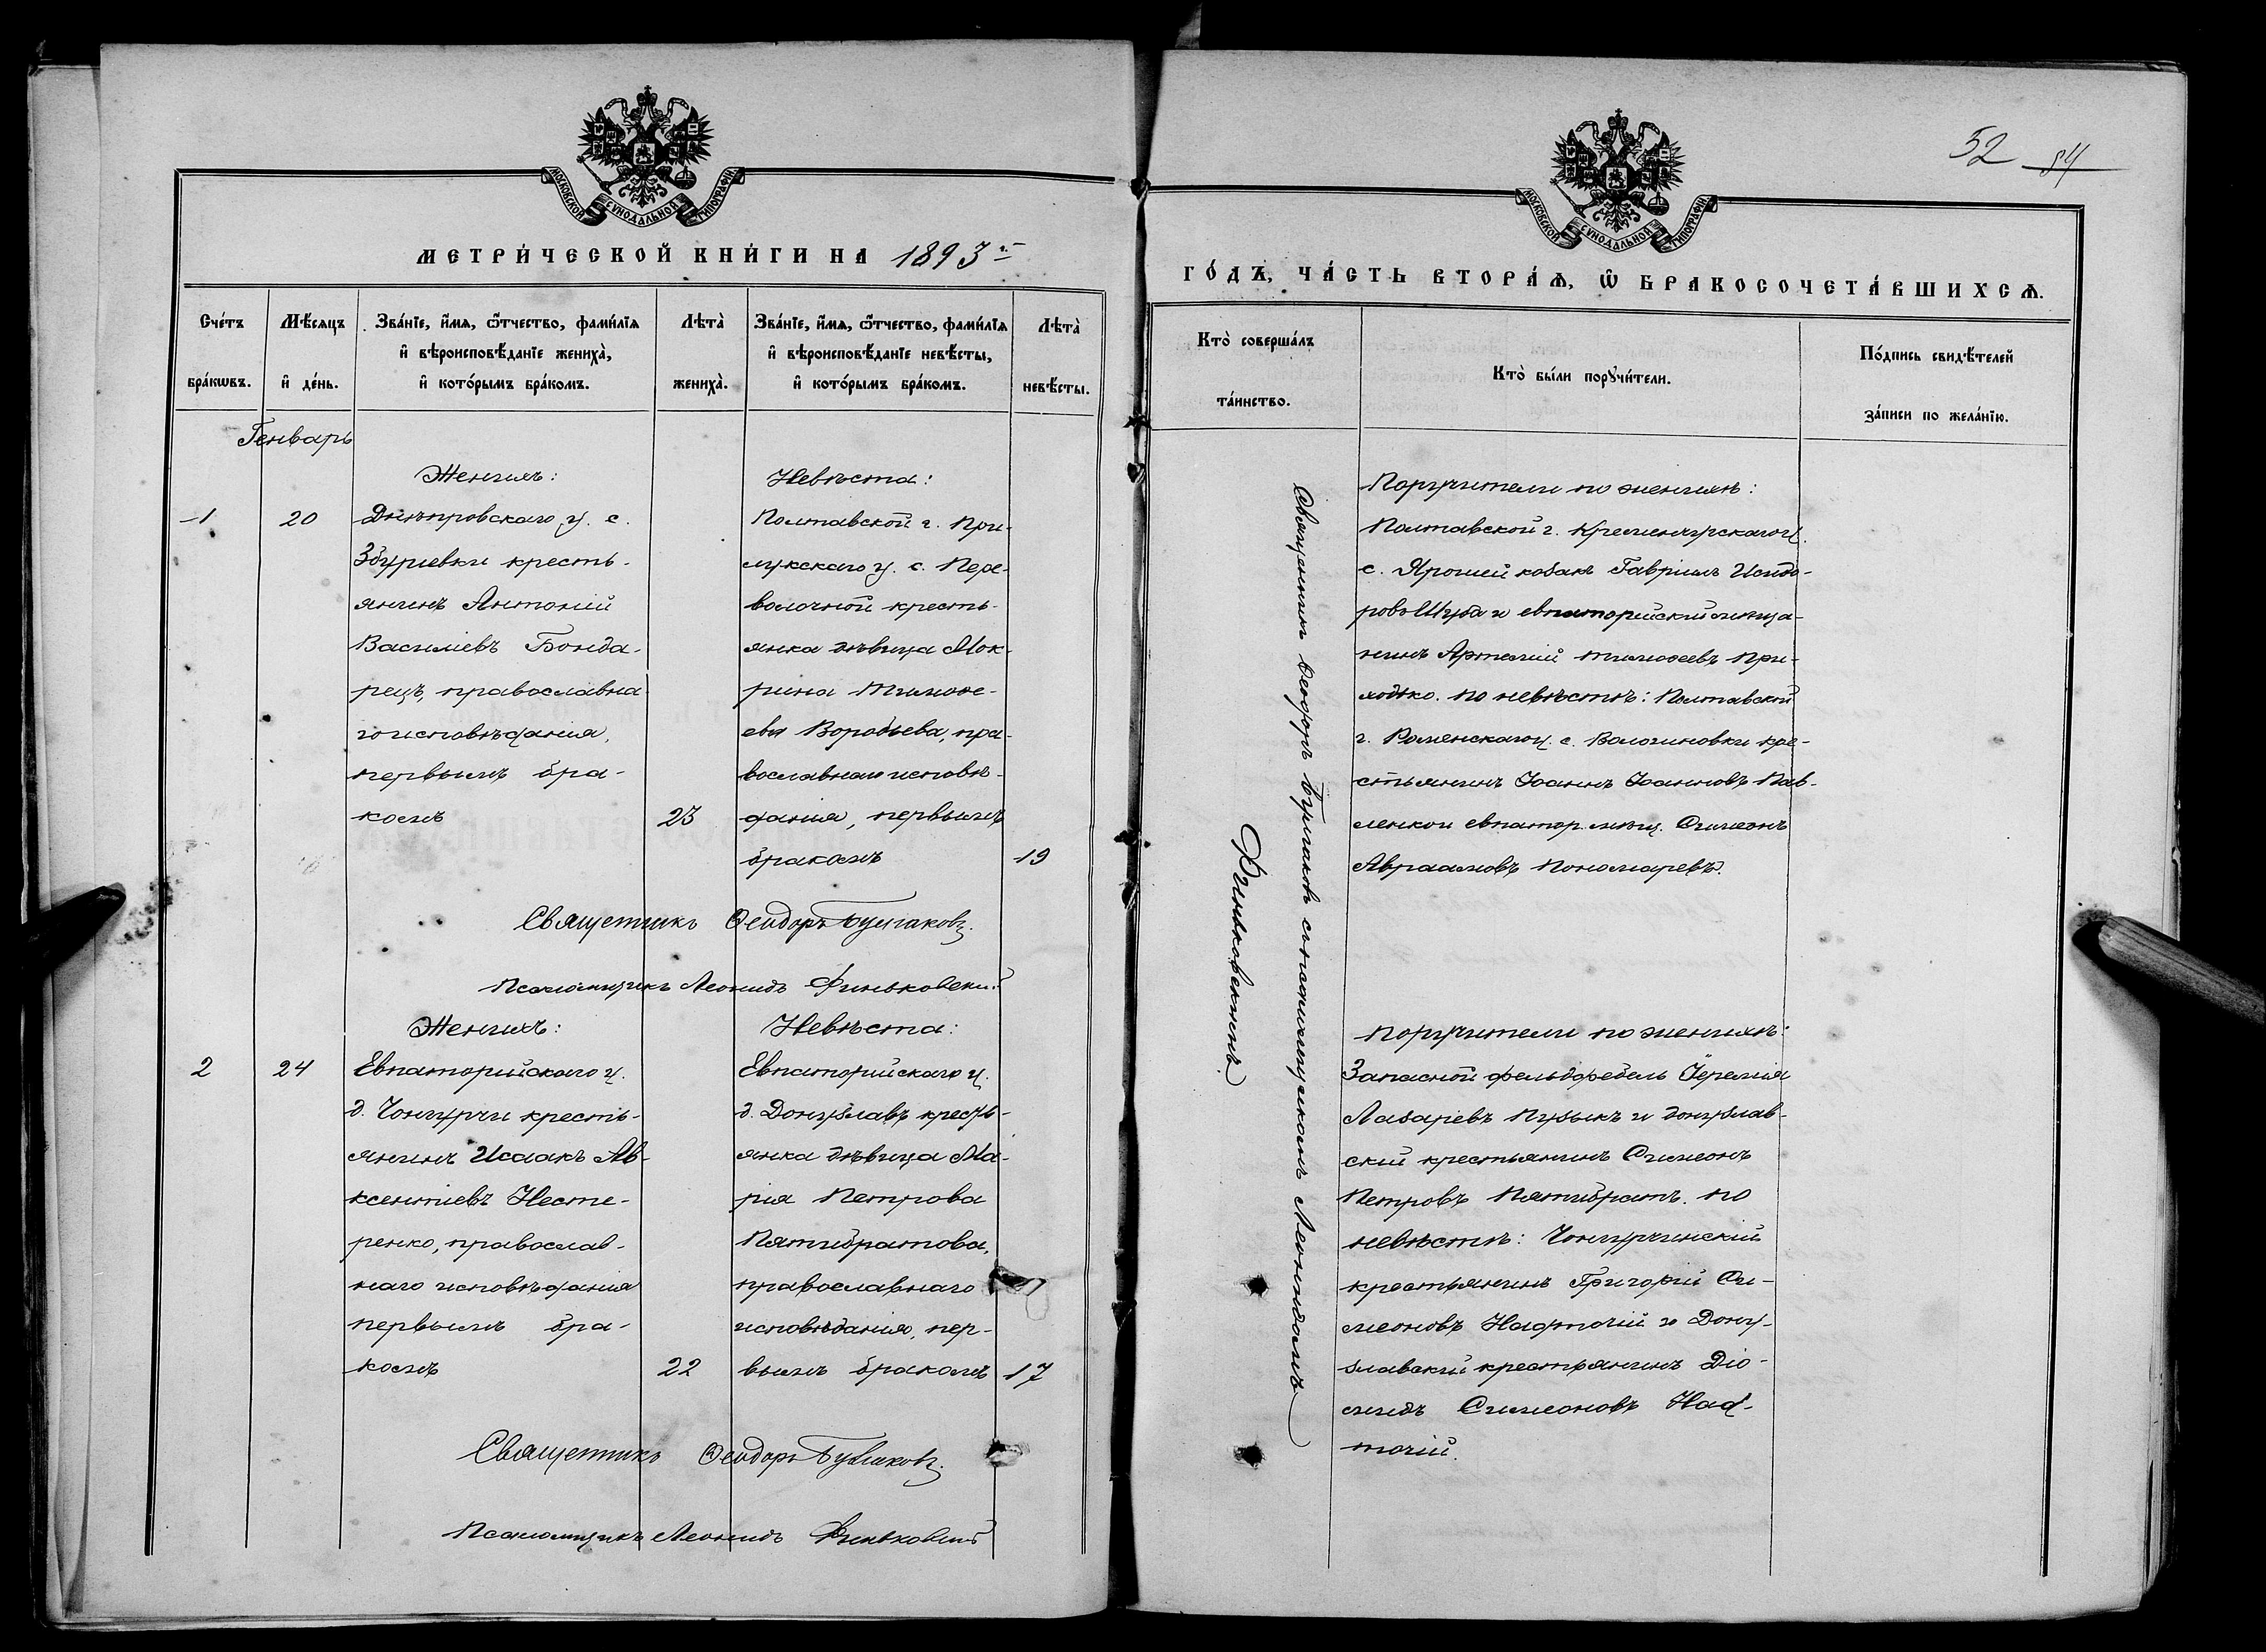 МОСКОВСКОЙ СѴНОДАЛЬНОЙ ТИПОГРАФІИ
МЕТРИ́ЧЕСКОЙ КНИ́ГИ НА 1893 г.
Сче́тъ бра́кѡвъ.
Мѣ́сяцъ и҆ де́нь.
Зва́нїе, и҆́мѧ, ѻ҆́тчество, фами́лїѧ
и҆ вѣроисповѣ́данїе жениха̀,
и҆ кото́рымъ бра́комъ.
Лѣта̀ жениха̀.
Зва́нїе, и҆́мѧ, ѻ҆́тчество, фами́лїѧ
и҆ вѣроисповѣ́данїе невѣ́сты,
и҆ кото́рымъ бра́комъ.
Лѣта̀ невѣ́сты.
Генварь
1
20
Женихъ:
Днѣпровскаго у. с.
Збурьевки кресть-
янинъ Антоній
Василіевъ Бонда-
рецъ, православна
го исповѣданія,
первымъ бра-
комъ
23
Невѣста:
Полтавской г. При-
лукскаго у. с. Пере-
волочной кресть-
янка дѣвица Мок-
рина Тимоѳе-
ева Воробьева, пра-
вославнаго исповѣ-
данія, первымъ
бракомъ
19
Священникъ Ѳеодоръ Булгаковъ.
Псаломщикъ Леонидъ Финьковскій
2
24
Женихъ:
Евпаторійскаго у.
д. Чонгурчи кресть-
янинъ Исаакъ Ав-
ксентіевъ Несте-
ренко, православ-
наго исповѣданія
первымъ бра-
комъ
22
Невѣста:
Евпаторійскаго у.
д. Донузлавъ кресть-
янка дѣвица Ма-
рія Петрова
Пятибратова,
православнаго
исповѣданія, пер-
вымъ бракомъ
17
Священникъ Ѳеодоръ Булгаковъ.
Псаломщикъ Леонидъ Финьковскій
52 84
МОСКОВСКОЙ СѴНОДАЛЬНОЙ ТИПОГРАФІИ
ГО́ДЪ, ЧА́СТЬ ВТОРА́Ѧ, Ѡ҆ БРАКОСОЧЕТА́ВШИХСѦ.
Кто̀ соверша́лъ
та́инство.
Кто̀ бы́ли порꙋчи́тели.
По́дпись свидѣ́телей
за́писи по жела́нїю.
Священникъ Ѳеодоръ Булгаковъ съ псаломщикомъ Леонидомъ
Финьковскимъ.
Поручители по женихѣ:
Полтавской г. Кременчугскаго у.
с. Ярошей козакъ Гавріилъ Исидо-
ровъ Шуба и евпаторійскій мѣща-
нинъ Артемій Тимоѳеевъ При-
ходько. по невѣстѣ: Полтавской
г. Роменскаго у. с. Волошиновки кре-
стьянинъ Іоаннъ Іоанновъ Пав-
ленко и евпатор. мѣщ. Симеонъ
Авраамовъ Пономаревъ.
Поручители по женихѣ:
Запасной фельдфебель Іеремія
Лазаревъ Пузыкъ и донузлав-
скій крестьянинъ Симеонъ
Петровъ Пятибратъ. по
невѣстѣ: Чонгурчинскій
крестьянинъ Григорій Си-
меоновъ Надточій и Дону-
злавскій крестьянинъ Діо-
мидъ Симеоновъ Над-
точій.